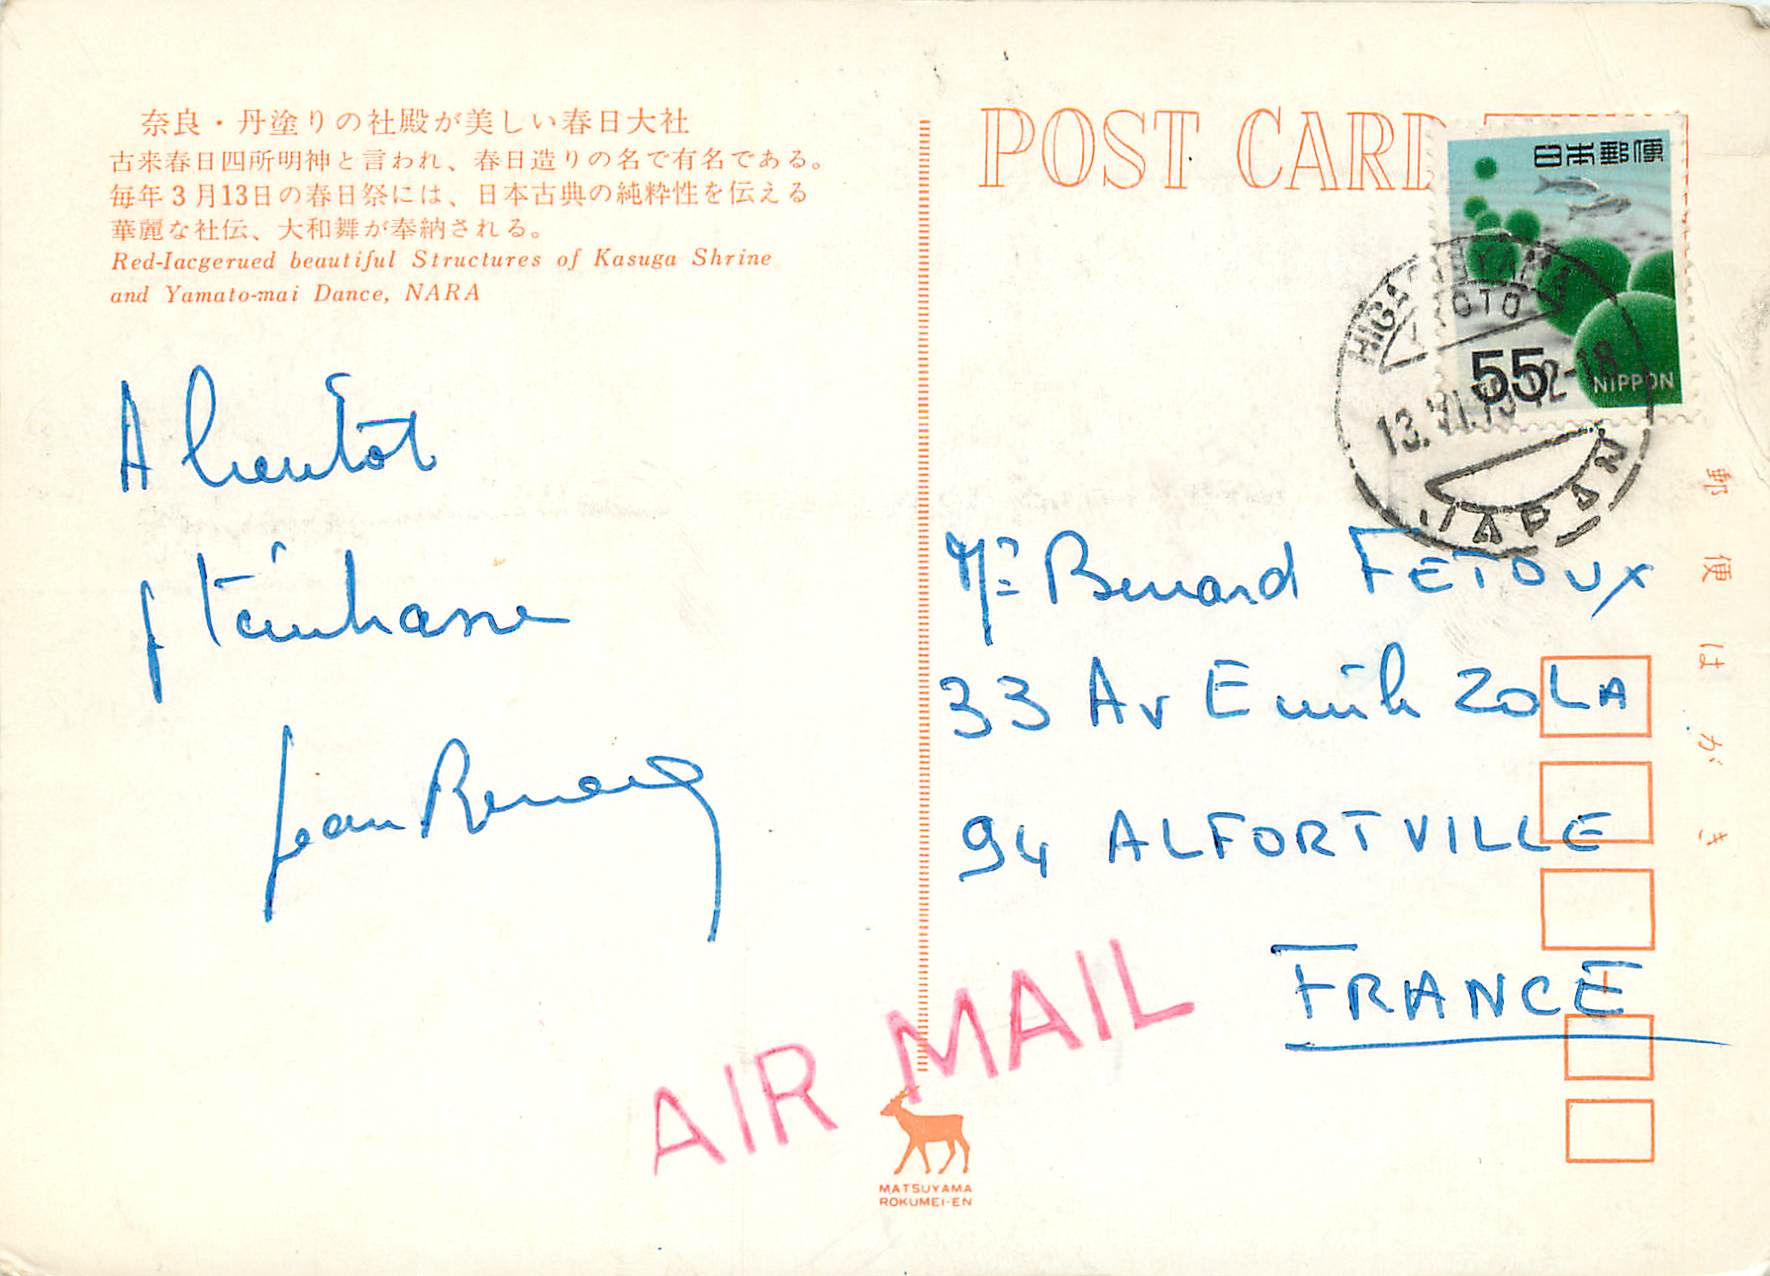 奈良・丹塗りの社殿が美しい春日大社
古来春日四所明神と言われ、春日造りの名で有名である。
毎年3月13日の春日祭には、日本古典の純粋性を伝える
華麗な社伝、大和舞が奉納される。
Red-Iacgerued beautiful Structures of Kasuga Shrine
and Yamato-mai Dance, NARA
A bientôt
Jean
POST CARD
日本郵便
55
NIPPON
HIGASHIYAMA
KYOTO
12-18
JAPAN
郵便はがき
Mr Bernard FETOUX
33 Av Emile ZOLA
94 ALFORTVILLE
FRANCE
AIR MAIL
MATSUYAMA
ROKUMEI-EN